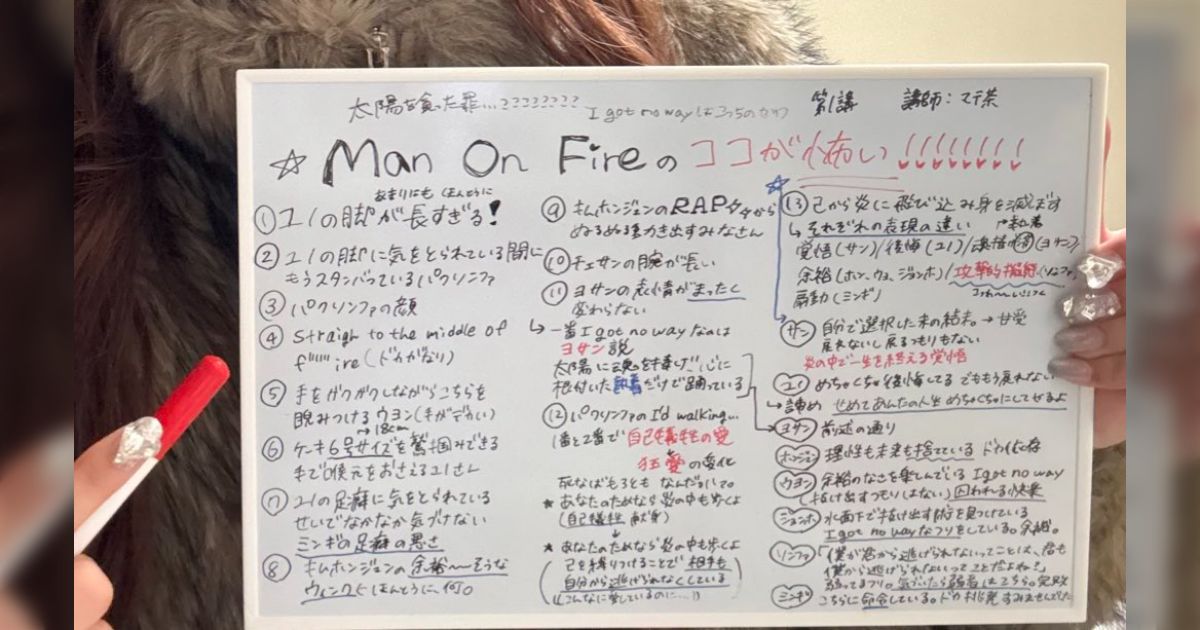 太陽を食った罪...????????
I got no wayはこっちのセリフ
第1講 講師:マテ茶
☆ Man On Fireのココが怖い!!!!!!!!
あまりにも ほんとうに
① ユノの脚が長すぎる!
② ユノの脚に気をとられている間に
もうスタンバっているパクソンファ
③ パクソンファの顔
④ Straigh to the middle of
fire(ドカがなり)
⑤ 手をガクガクしながらこちらを
睨みつけるウヨン(手がデカい)
→18cm
⑥ ケーキ6号サイズを鷲掴みできる
手で喉元をおさえるユノさん
⑦ ユノの足癖に気をとられている
せいでなかなか気づけない
ミンギの足癖の悪さ
⑧ キムホンジュンの余裕〜〜そうな
ウィンク ほんとうに、何。
⑨ キムホンジュンのRAPタタから
ぬるぬる動き出すみなさん
⑩ チェサンの腕が長い
⑪ ヨサンの表情がまったく
変わらない
↳ 一番I got no wayなのは
ヨサン説
太陽に魂を捧げ、心に
根付いた執着だけで踊っている
⑫ パクソンファのI'd walking...
1番と2番で自己犠牲の愛
狂愛の変化
死なばもろとも なんだソレ。
★ あなたのためなら炎の中も歩くよ
(自己犠牲 献身)
↓
★ あなたのためなら炎の中も歩くよ
己を縛りつけることで相手も
自分から逃げられなくしている
(こんなに愛しているのに...!)
⑬ 己から炎に飛び込み身を滅ぼす
↳ それぞれの表現の違い
→執着
覚悟(サン)/後悔(ユノ)/(ヨサン)
余裕(ホン、ウヨ、ジョンホ)/攻撃的(ソンファ)
扇動(ミンギ)
サン 自分で選択した末の結末。→甘受
戻れないし戻るつもりもない
炎の中で一生を終える覚悟
ユノ めちゃくちゃ後悔してる でももう戻れない
↳ 諦め せめてあんたの人生めちゃくちゃにしてやるよ
ヨサン 前述の通り
ホンジュン 理性も未来も捨てている ドカ依存
ウヨン 余裕のなさを楽しんでいる I got no way
(抜け出すつもりはない) 囚われる快楽
ジョンホ 水面下で抜け出す術を見つけている
I got no wayなフリをしている。余裕。
ソンファ 「僕が君から逃げられないってことは、君も
僕から逃げられないってことだよね?」
弱ってるフリ。気づいたら弱者はこちら。完敗
ミンギ こちらに命令している。ドカ挑発 すみませんでした